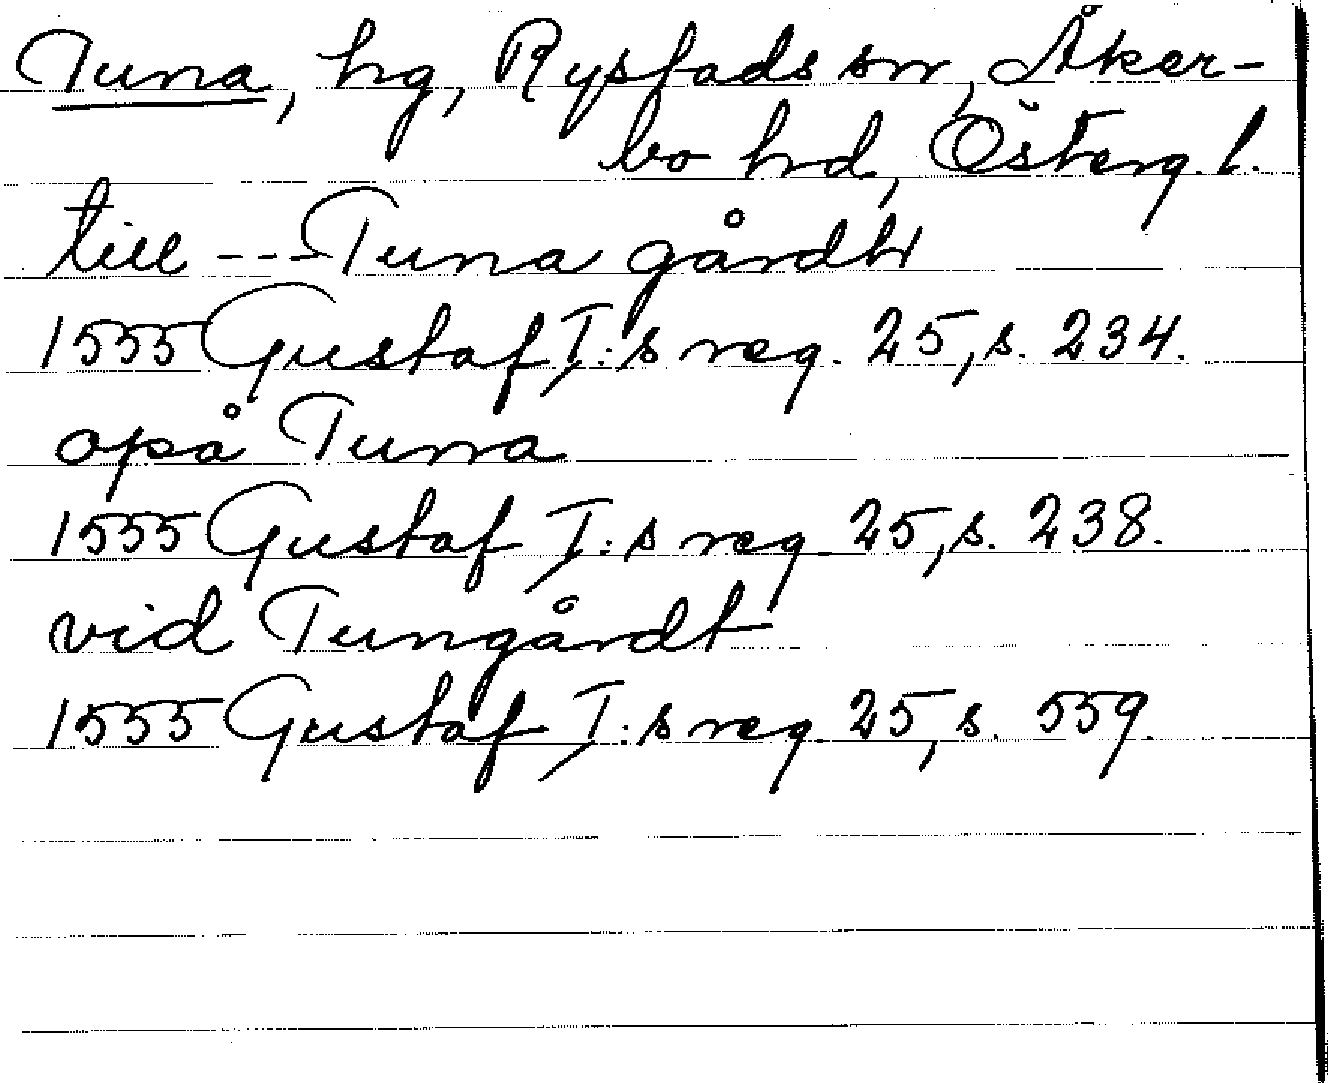 Tuna, hg, Rystads sn, Åker-
bo hd, Österg. l.
till --- Tuna gårdh
1555 Gustaf I:s reg. 25, s. 234.
opå Tuna
1555 Gustaf I:s reg. 25, s. 238.
vid Tungårdt
1555 Gustaf I:s reg. 25, s. 559.